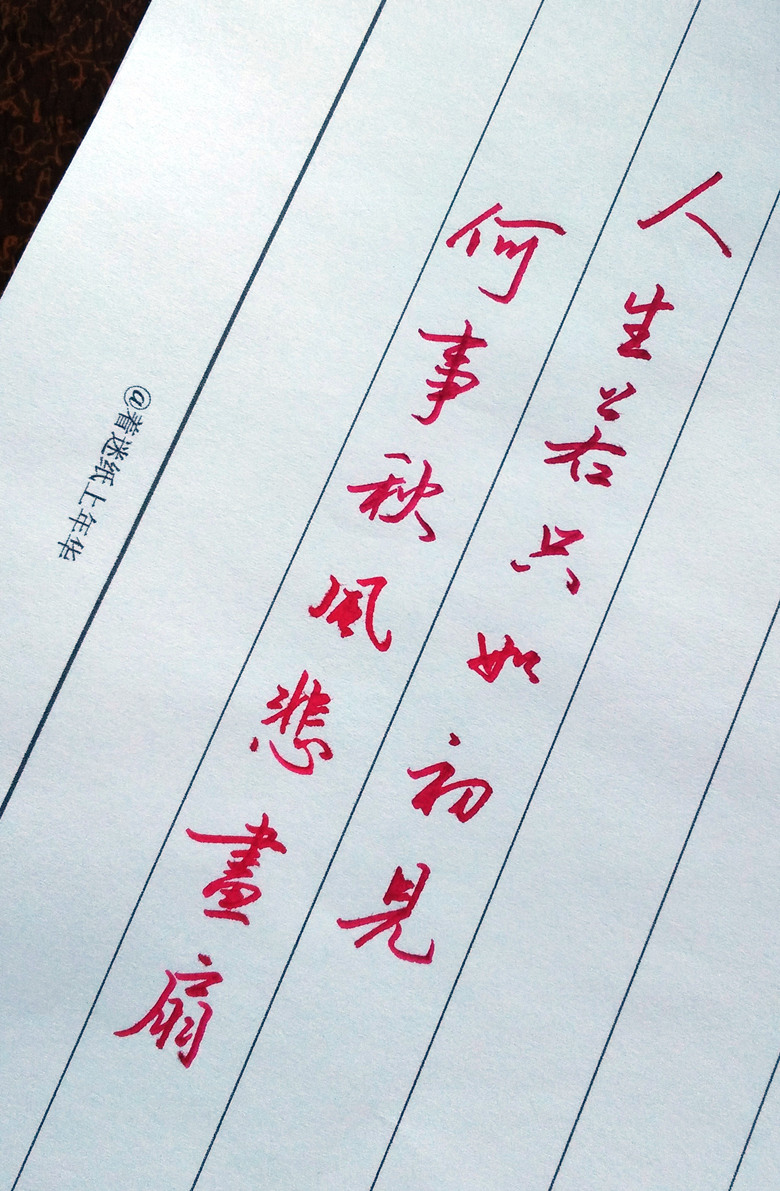 人生若只如初見
何事秋風悲畫扇
@着迷纸上年华